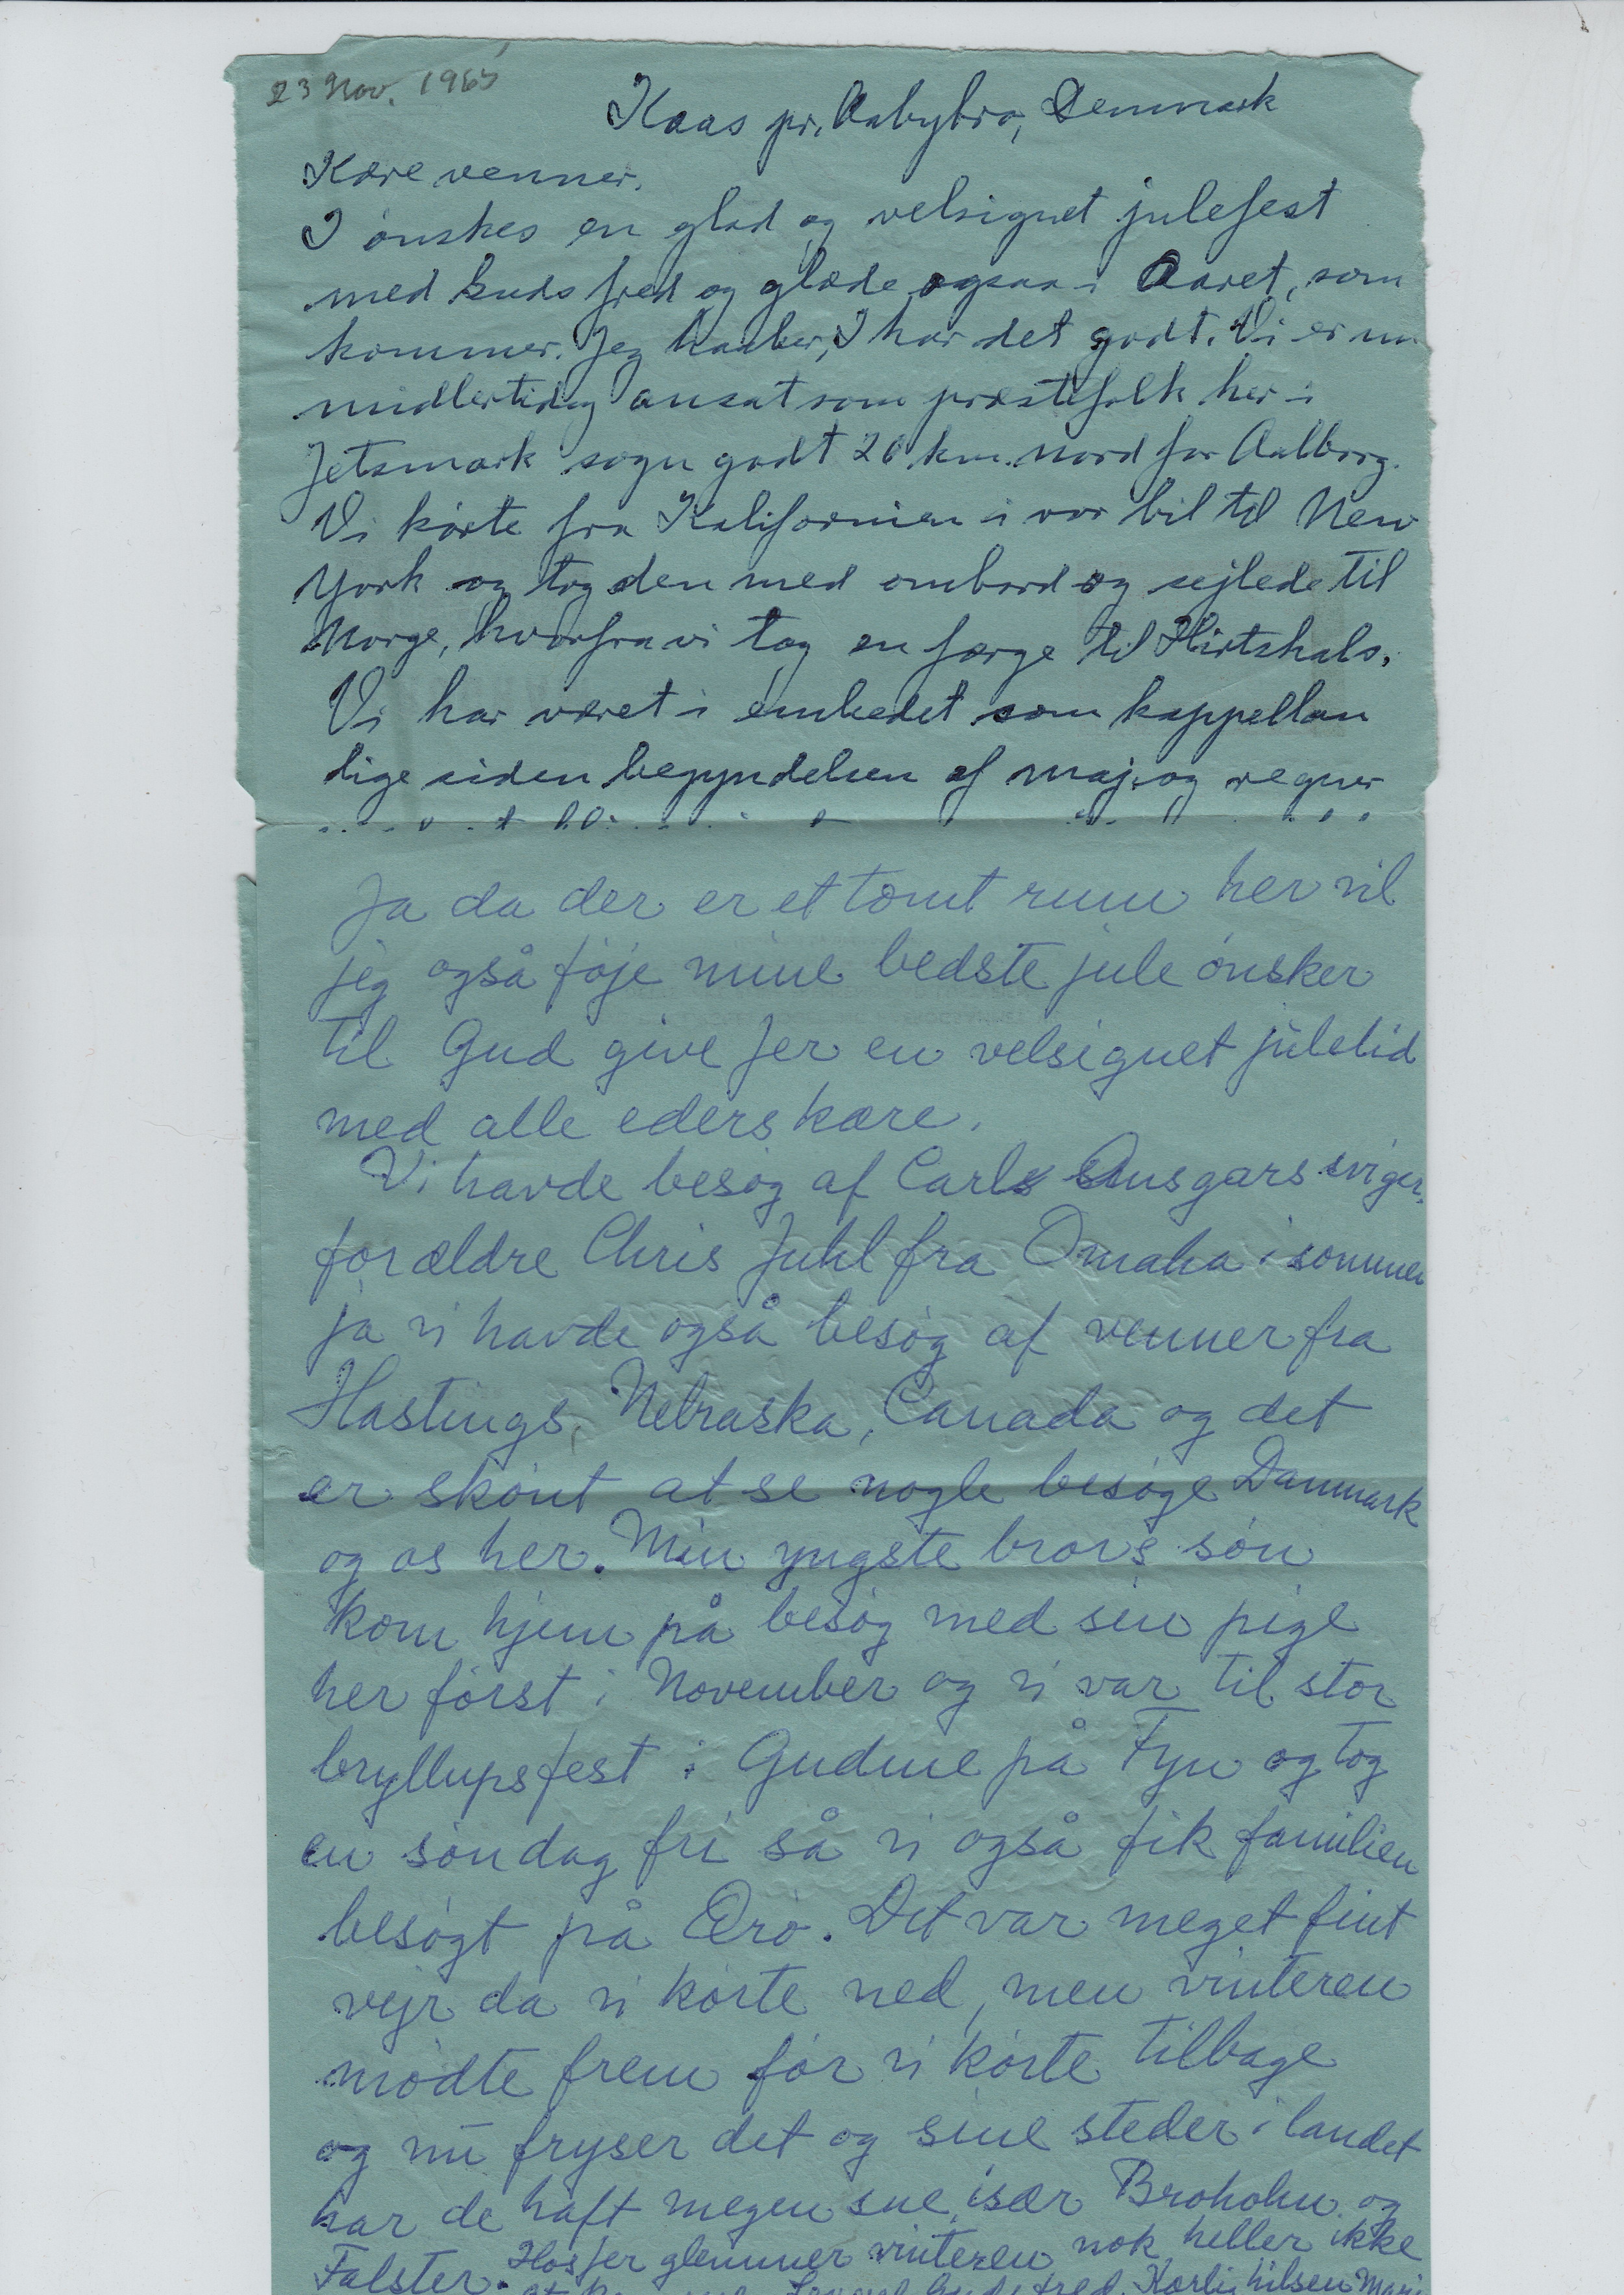 23 Nov. 1965
Kaas pr. Aabybro, Denmark
Kære venner.
I ønskes en glad og velsignet julefest
med Guds fred og glæde ogsaa i Aaret, som
kommer. Jeg haaber, I har det godt. Vi er nu
midlertidig ansat som præstefolk her i
Jetsmark sogn godt 20 km. nord for Aalborg.
Vi kørte fra Kalifornien i vor bil til New
York og tog den med ombord og sejlede til
Norge, hvorfra vi tog en færge til Hirtshals.
Vi har været i embedet som kappellan
lige siden begyndelsen af maj og regner
Ja da der er et tomt rum her vil
jeg også føje mine bedste jule ønsker
til Gud give Jer en velsignet juletid
med alle eders kære.
Vi havde besøg af Carl Ansgars sviger-
forældre Chris Juhl fra Omaha i sommer
ja vi havde også besøg af venner fra
Hastings, Nebraska, Canada og det
er skønt at se nogle besøge Danmark
og os her. Min yngste brors søn
kom hjem på besøg med sin pige
her først i November og vi var til stor
bryllupsfest i Gudme på Fyn og tog
en søndag fri så vi også fik familien
besøgt på Ærø. Det var meget fint
vejr da vi kørte ned, men vinteren
mødte frem før vi kørte tilbage
og nu fryser det og sine steder i landet
har de haft megen sne især Broholm og
Falster. Hos Jer glemmer vinteren nok heller ikke
at Guds fred. Kærlig hilsen Marie